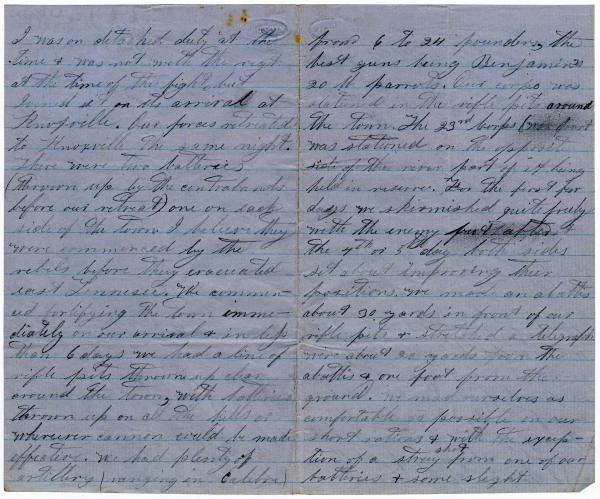 I was on detached duty at the
time & was not with the regt
at the time of the fight, but
joined it on its arrival at
Knoxville. Our forces retreated
to Knoxville the same night.
There were two batteries
(thrown up by the contrabands
before our retreat) one on each
side of the town I believe they
were commenced by the
rebels before they evacuated
east Tennesee. We commen-
ced fortifying the town imme-
diately on our arrival & in less
than 6 days we had a line of
rifle pits thrown up clear
around the town, with batteries
thrown up on all the hills or
wherever cannon could be made
effective. we had plenty of
artillery (ranging in Caliber)
from 6 to 24 pounders, the
best guns being Benjamins
20 lb parrots. Our corps was
stationed in the rifle pits around
the town. The 23rd Corps
was stationed on the opposit
side of the river part of it being
held in reserve. For the first few
days we skirmished quite freely
with the enemy but after
the 4th or 5 day both sides
set about improving their
positions. we made an abattis
about 30 yards in front of our
rifle pits & a telegraph
were about 20 yards from the
abattis & one foot from the
ground. We made ourselves as
comfortable as possible on our
short rations & with the excep-
tion of a stray shot from one of our
batteries & some slight